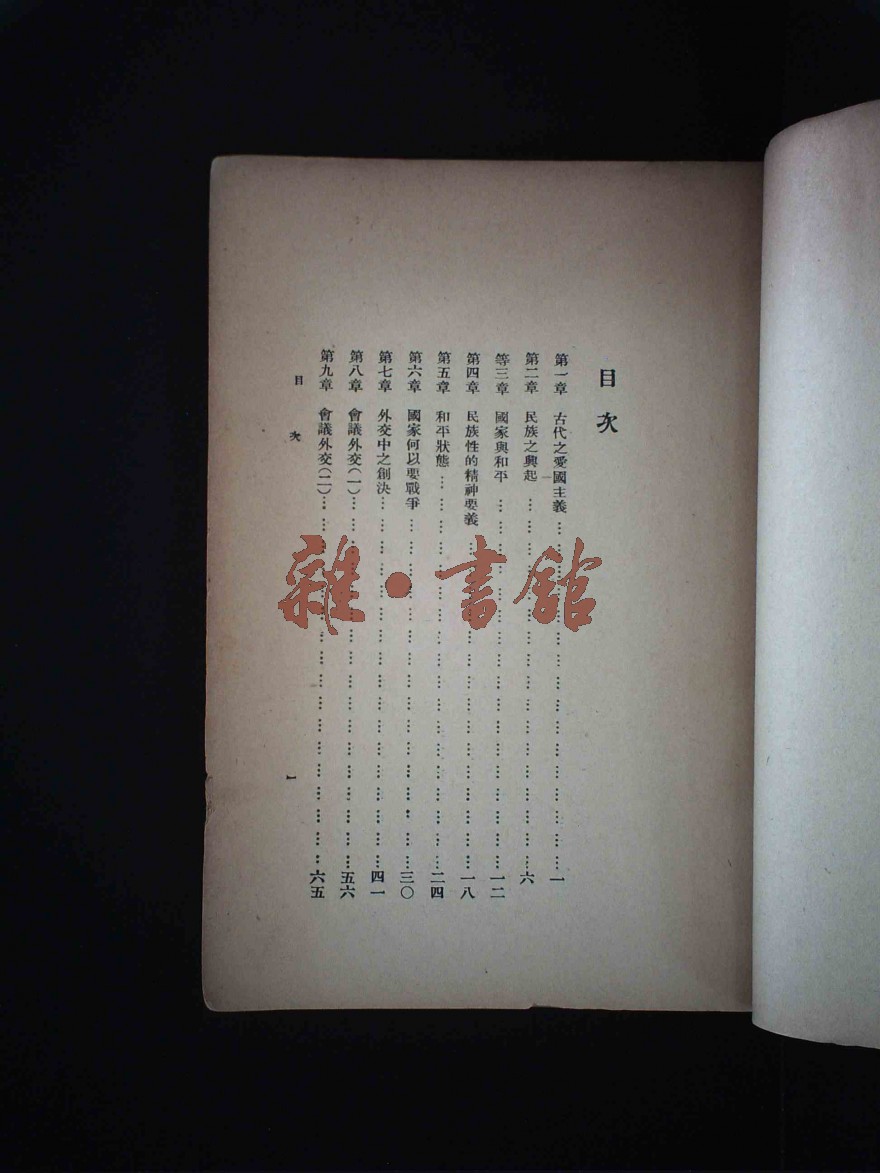 目次
第一章 古代之愛國主義……………………一
第二章 民族之興起……………………六
等三章 國家與和平……………………一二
第四章 民族性的精神要義……………………一八
第五章 和平狀態……………………二四
第六章 國家何以要戰爭……………………三〇
第七章 外交中之創決……………………四一
第八章 會議外交(一)……………………五六
第九章 會議外交(二)……………………六五
目次 一
雜·書館